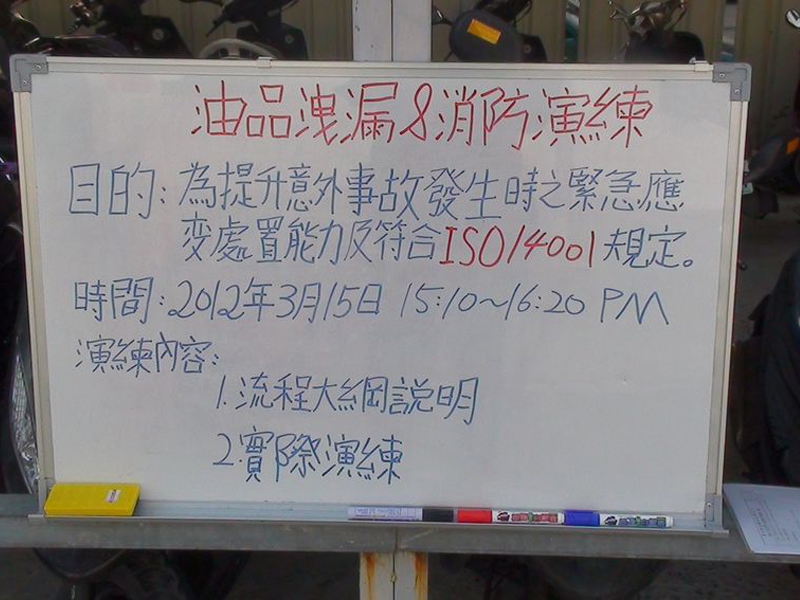 油品洩漏&消防演練
目的：為提升意外事故發生時之緊急應
变處置能力及符合ISO14001規定。
時間：2012年3月15日 15:10~16:20 PM
演練內容：
1.流程大綱說明
2.實際演練